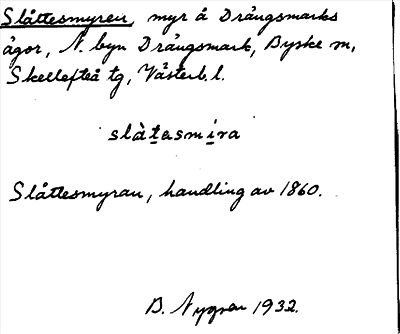 Slåttesmyren, myr å Drängsmarks
ägor, N. byn Drängsmark, Byske sn,
Skellefteå tg, Västerb. l.
slàtasmira
Slåttesmyran, handling av 1860.
B. Nygren 1932.